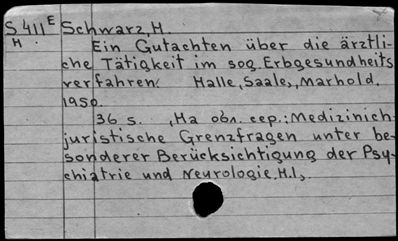 S 411 E Schwarz, H.
H Ein Gutachten über die ärztli-
che Tätigkeit im sog. Erbgesundheits
verfahren. Halle, Saale, Marhold.
1950.
36 s. , На обл. сер.: Medizinich-
juristische Grenzfragen unter be-
sonderer Berücksichtigung der Psy-
chiatrie und Neurologie, H.1,.